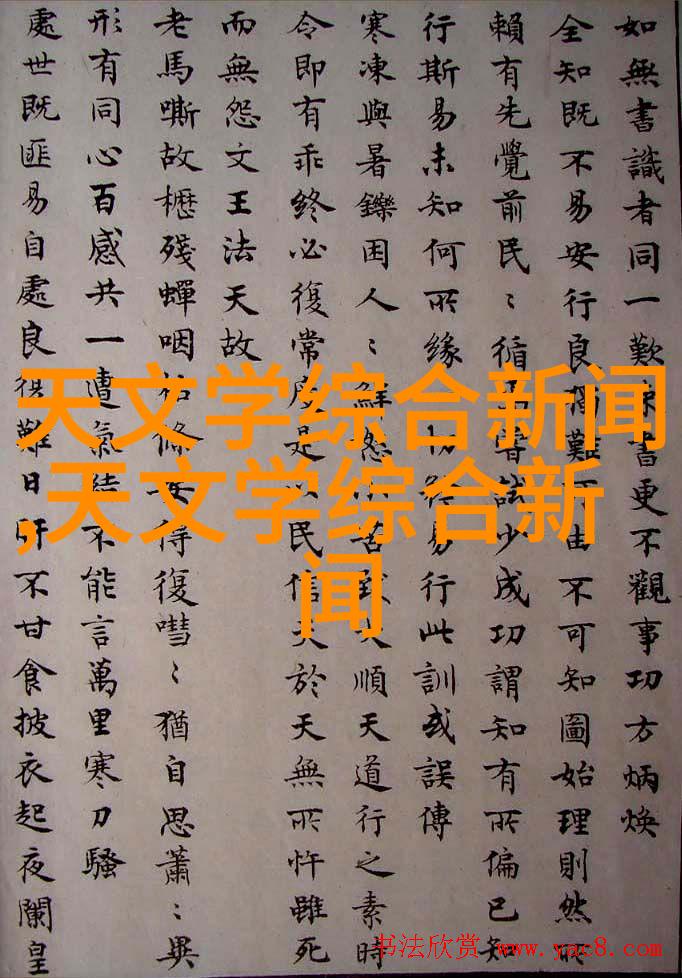 天文学综合新闻
,天文学综合新
闻
如無書識者同一歎書更不觀事功方炳煥
全知既不易安行良難可由不可知圖始理則然所
賴有先覺前民〻循試少成功謂知有所偏已知
行斯易未知何所緣易行此訓或誤傳
寒凍與暑鑠困人〻鮮怨致大順天道行之素時
令即有乖終必復常度是以民信天於天無所忤雖死
而無怨文王法天故
老馬嘶故櫪殘蟬咽枯條安得復嘒〻猶自思蕭〻異
形有同心百感共一遭氣結不能言萬里寒刀騷
處世既匪易自處良獨難日旰不甘食披衣起夜闌皇
书法欣赏 www.yac8.com